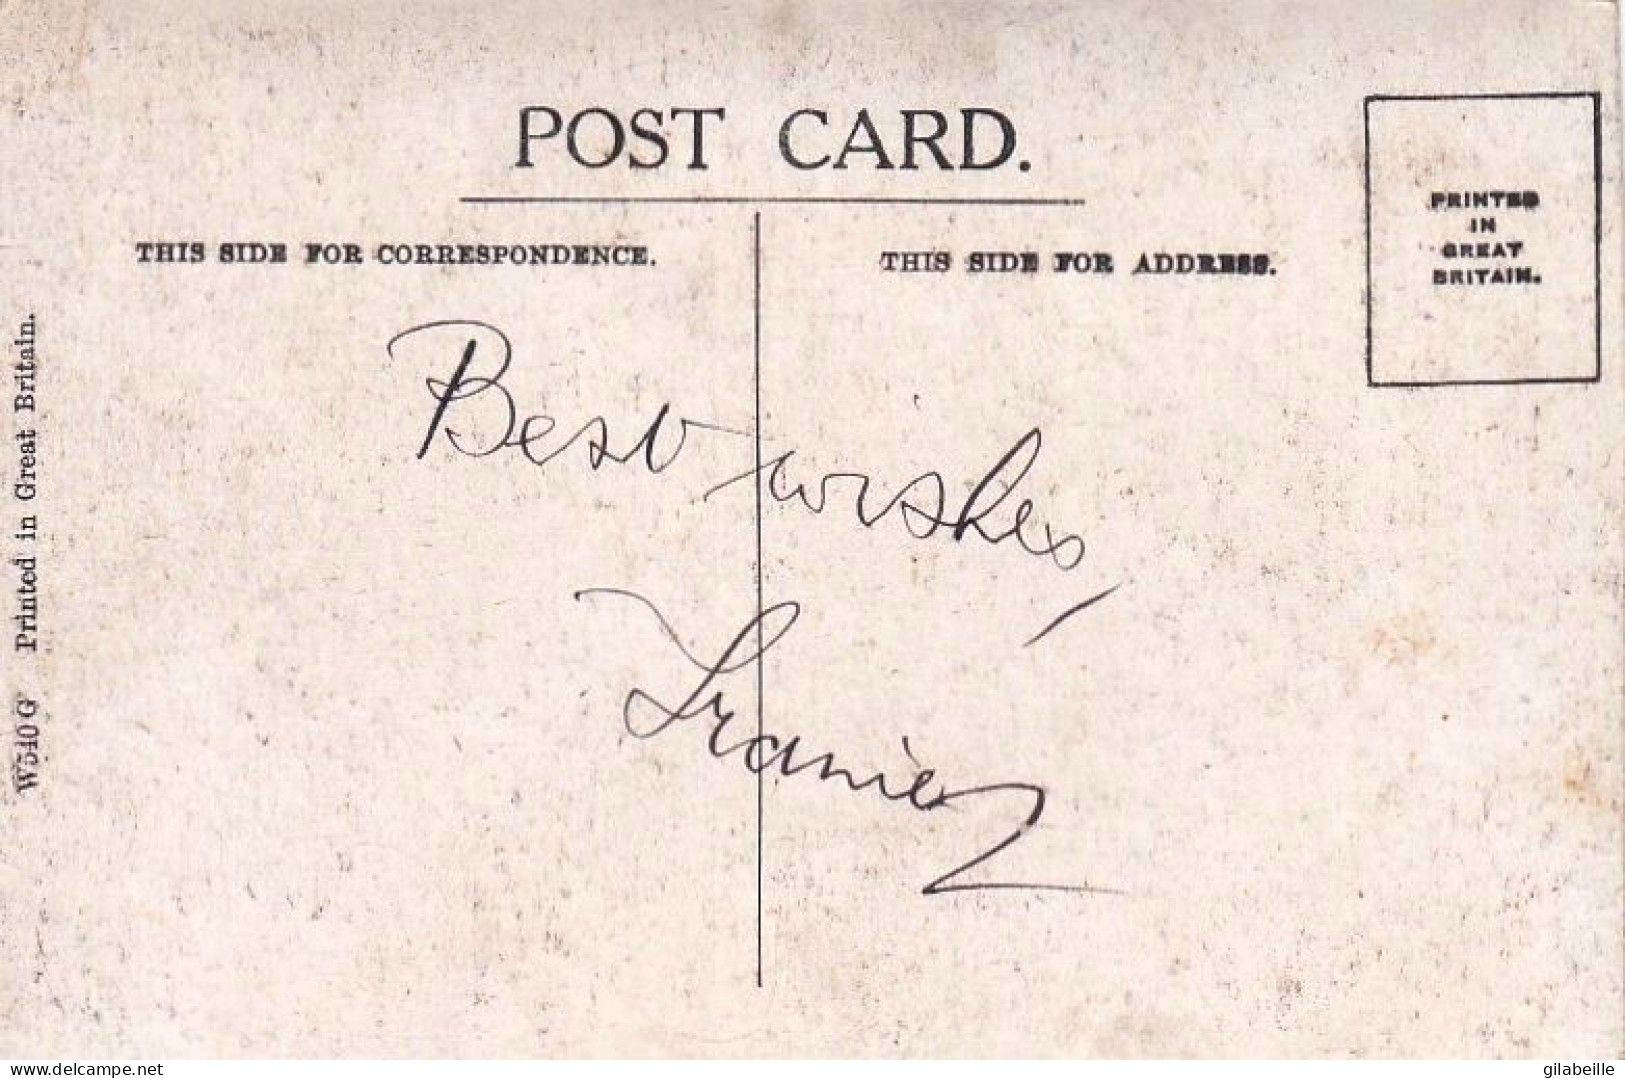 POST CARD.
THIS SIDE FOR CORRESPONDENCE.
THIS SIDE FOR ADDRESS.
PRINTED
IN
GREAT
BRITAIN.
Best wishes,
W540G Printed in Great Britain.
delcampe.net
gilabeille